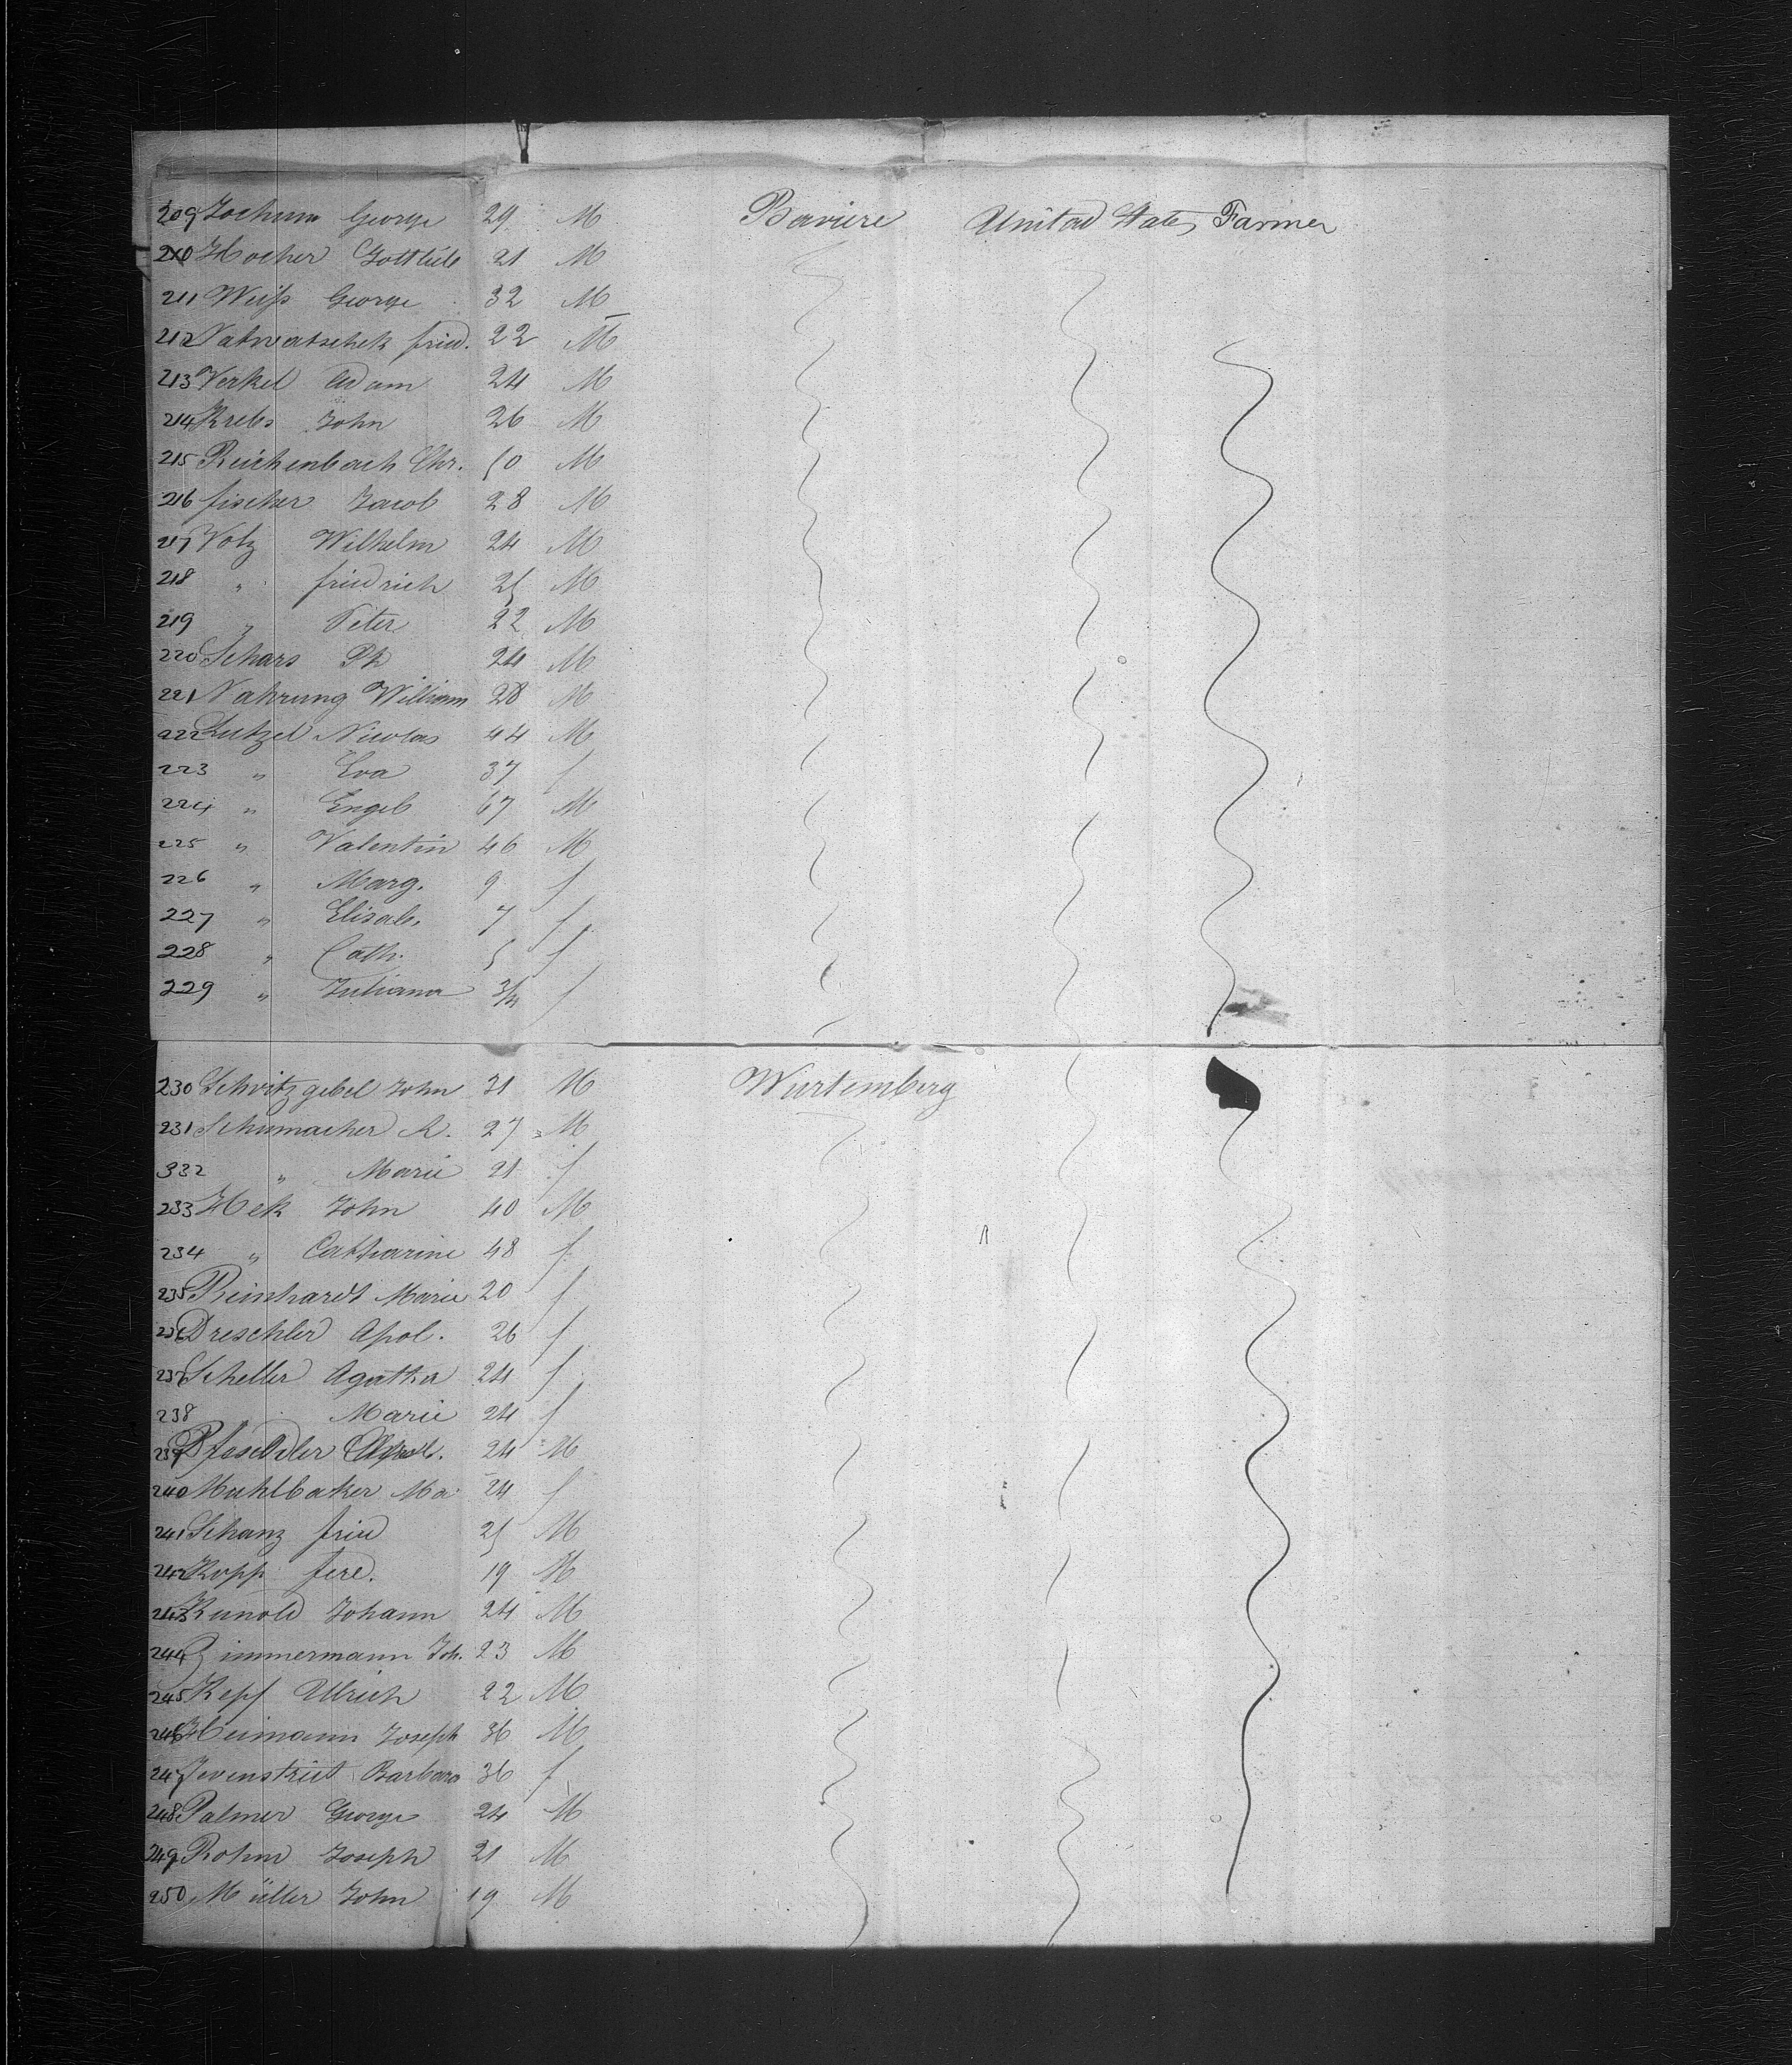 209 Jochum George 29 M Baviere United States Farmer
210 Hocher Gottlieb 21 M
211 Weiſs George 32 M
212 fried. 22 M
213 Verkel Adam 24 M
214 Krebs John 26 M
215 Reichenbach Chr. 50 M
216 fischer Jacob 28 M
217 Votz Wilhelm 24 M
218 " friedrich 25 M
219 " Peter 22 M
220 Schars Ph 24 M
221 Nahrung William 28 M
222 Lutzel Nicolas 44 M
223 " Eva 37 f
224 " Engelb 67 M
225 " Valentin 46 M
226 " Marg. 9 f
227 " Elisab. 7 f
228 " Cath. 5 f
229 " Juliana 3/4 f
230 Schvitzgebel John 31 M Wurtemberg
231 Schumacher A. 27 M
332 " Marie 21 f
233 Hek John 40 M
234 " Catharine 48 f
235 Reinhardt Marie 20 f
236 Dreschler Apol. 26 f
237 Scheller Agatha 24 f
238 Marie 24 f
239 24 M
240 Muhlbaker Ma 24 f
241 Schanz fried 25 M
242 Kopp ferd. 19 M
243 Kunold Johann 24 M
244 Zimmermann Joh. 23 M
245 Kepf Ulrich 22 M
246 Heimann Joseph 36 M
247 Barbara 36 f
248 Palmer George 24 M
249 Rohm Joseph 21 M
250 Müller John 19 M